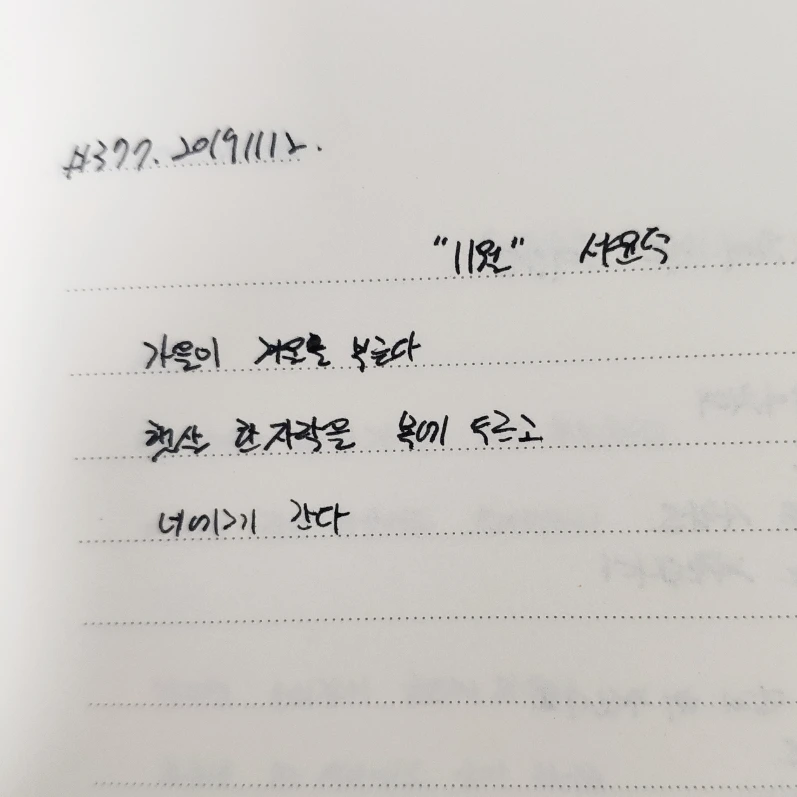 #377. 20191112.
"11월" 서윤덕
가을이 겨울을 붓는다
햇살 한자락을 목에 두르고
너에게 간다